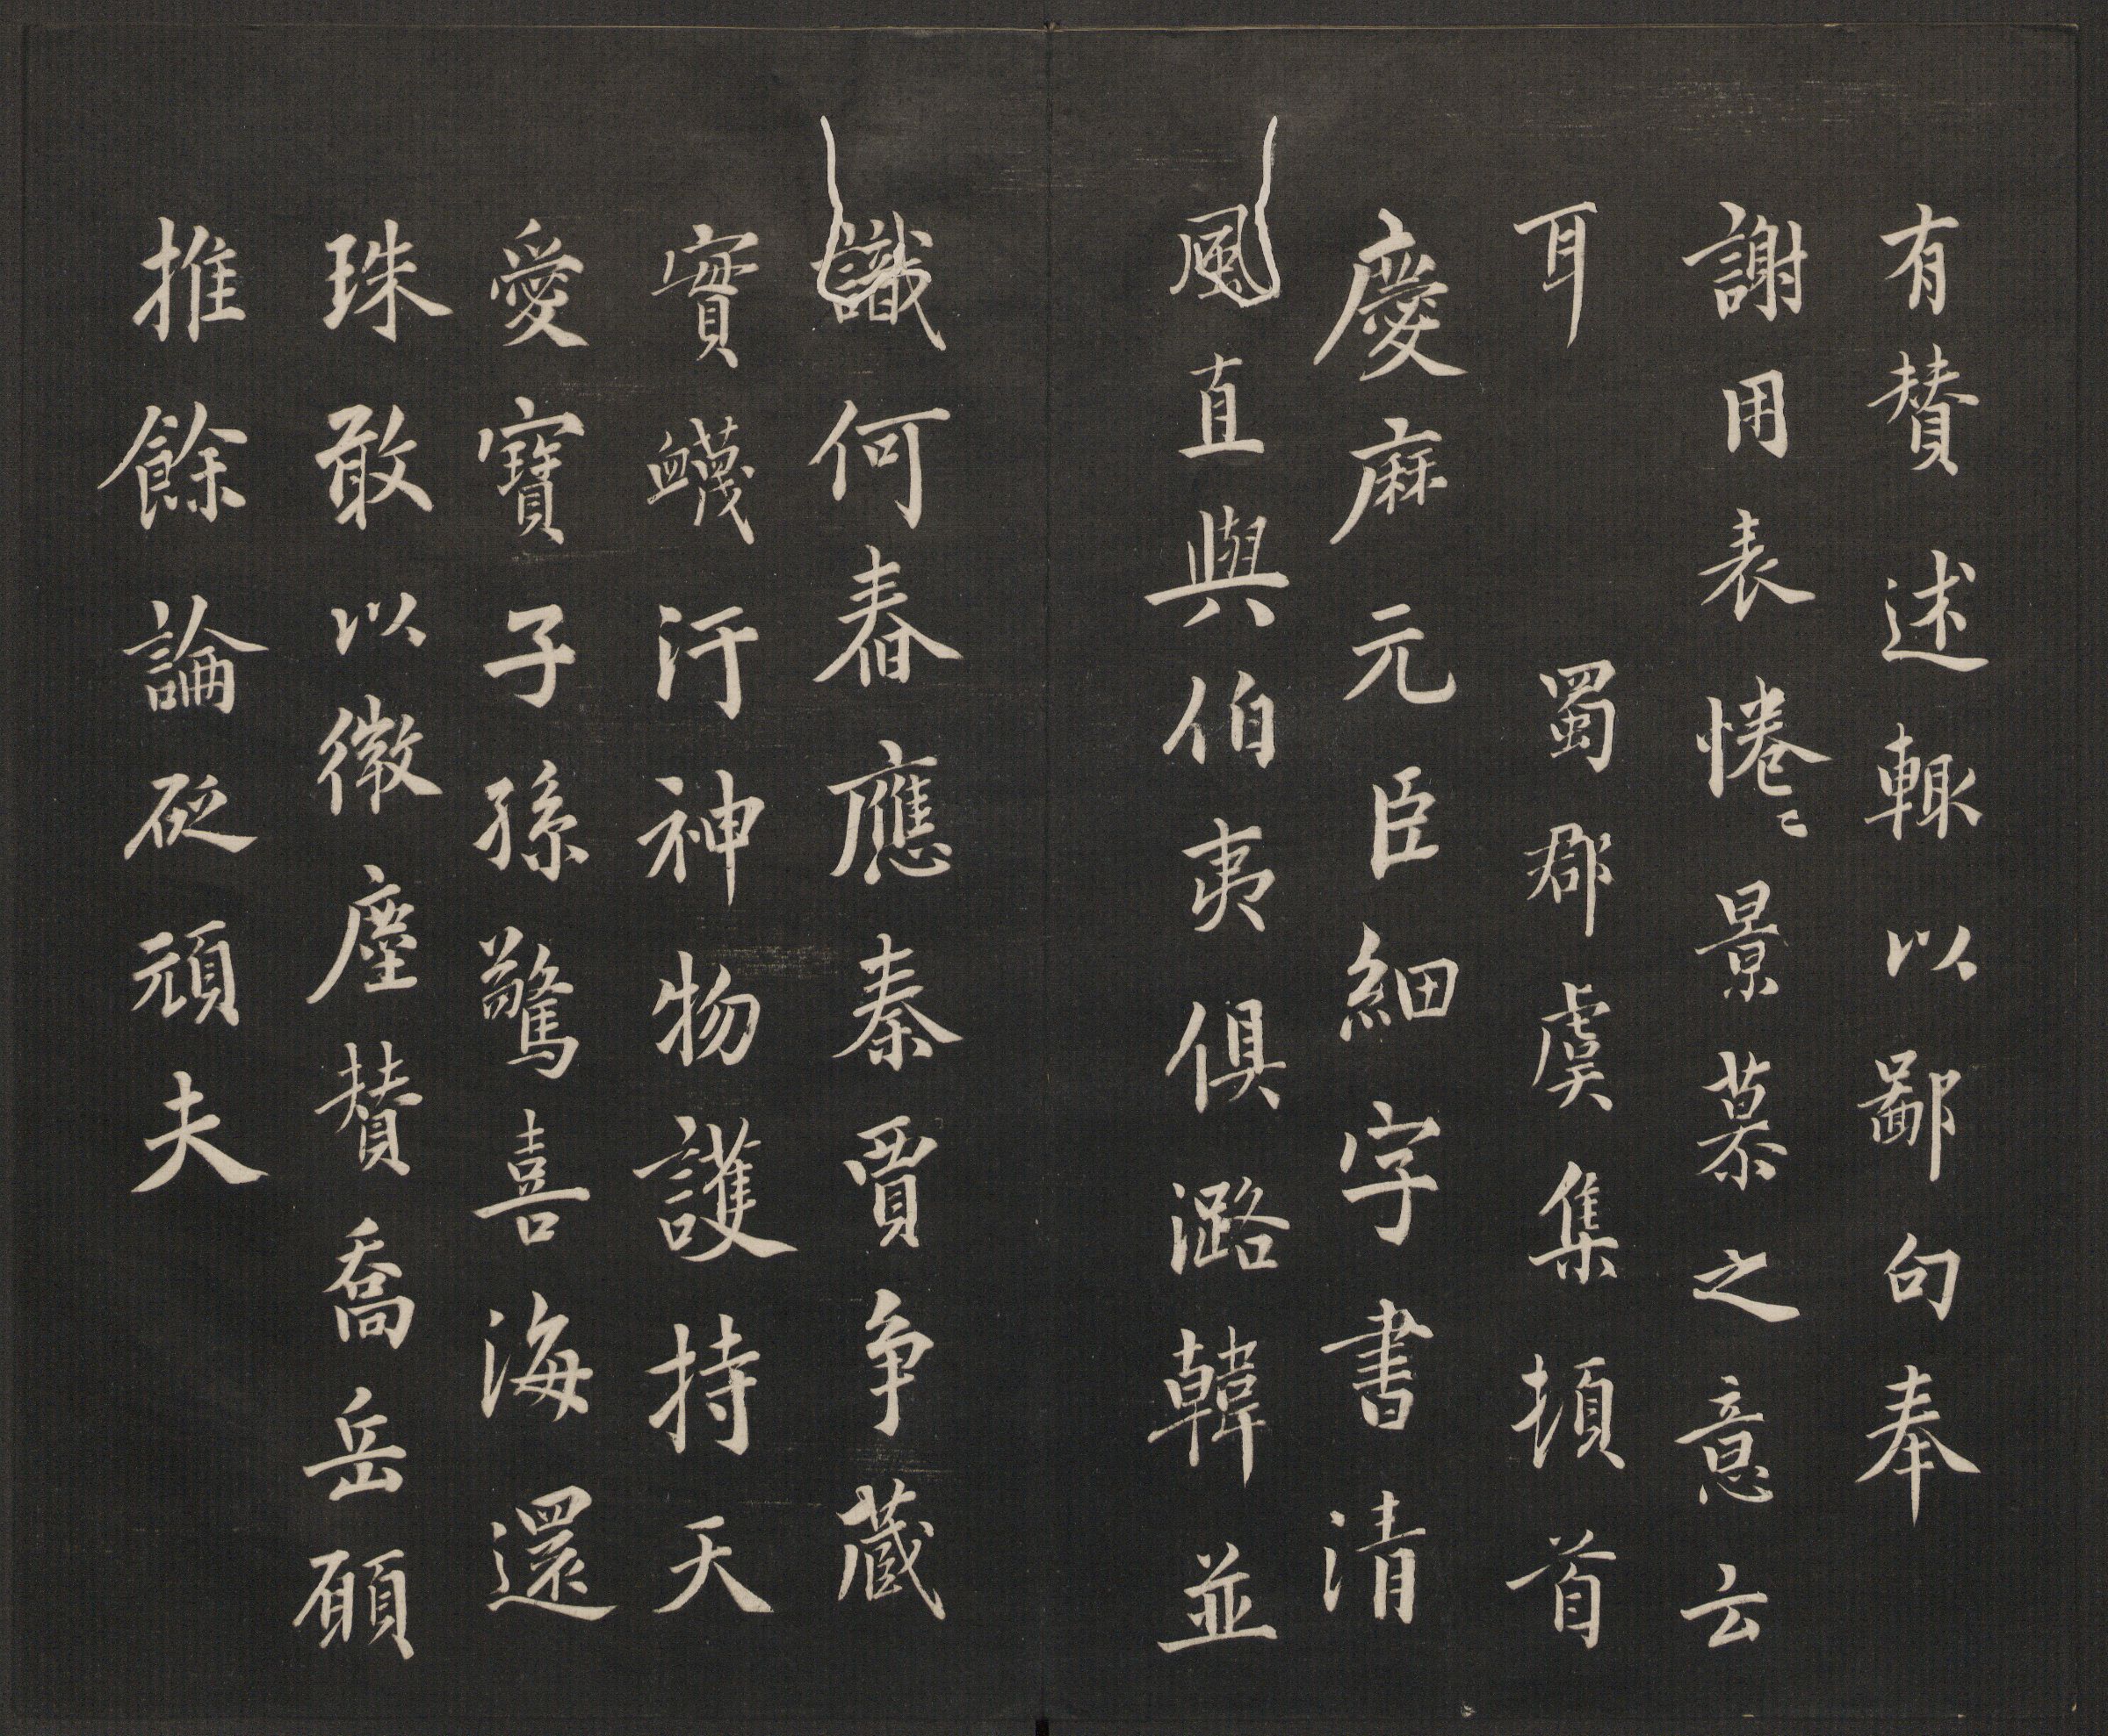 有賛述輙以鄙句奉
謝用表惓〻景慕之意云
耳　蜀郡虞集頓首
慶麻元臣細字書清
風直與伯夷俱潞韓並
識何春應秦賈争藏
實衊汙神物護持天
愛寶子孫驚喜海還
珠敢以徽塵賛喬岳願
推餘論砭頑夫